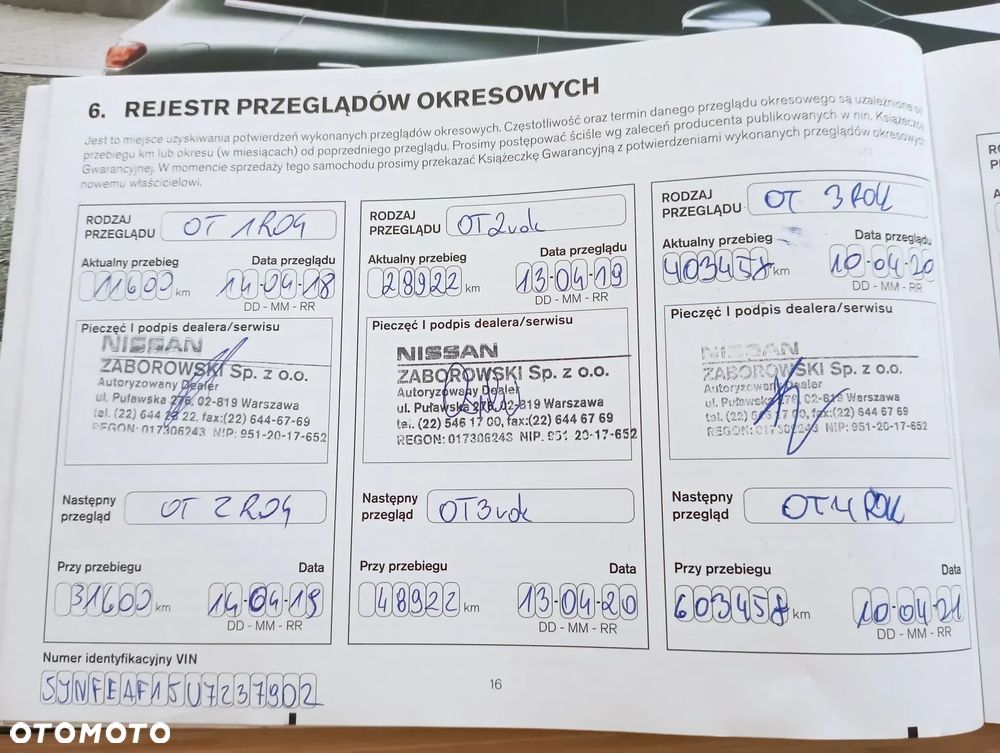 6. REJESTR PRZEGLĄDÓW OKRESOWYCH
Jest to miejsce uzyskiwania potwierdzeń wykonanych przeglądów okresowych. Częstotliwość oraz termin danego przeglądu okresowego są uzależnione od
przebiegu km lub okresu (w miesiącach) od poprzedniego przeglądu. Prosimy postępować ściśle wg zaleceń producenta publikowanych w nin. Książeczce
Gwarancyjnej. W momencie sprzedaży tego samochodu prosimy przekazać Książeczkę Gwarancyjną z potwierdzeniami wykonanych przeglądów okresowych
nowemu właścicielowi.
RODZAJ
PRZEGLĄDU OT 1 ROK
Aktualny przebieg Data przeglądu
11600 km 14-04-18
DD - MM - RR
Pieczęć I podpis dealera/serwisu
NISSAN
ZABOROWSKI Sp. z o.o.
Autoryzowany Dealer
ul. Puławska 276, 02-819 Warszawa
tel. (22) 644 22, fax:(22) 644-67-69
REGON: 017306243 NIP: 951-20-17-652
Następny
przegląd OT 2 ROK
Przy przebiegu Data
31600 km 14-04-19
DD - MM - RR
RODZAJ
PRZEGLĄDU OT 2 rok
Aktualny przebieg Data przeglądu
28922 km 13-04-19
DD - MM - RR
Pieczęć I podpis dealera/serwisu
NISSAN
ZABOROWSKI Sp. z o.o.
Autoryzowany Dealer
ul. Puławska 276, 02-819 Warszawa
tel. (22) 546 17 00, fax:(22) 644 67 69
REGON: 017306243 NIP. 951-20-17-652
Następny
przegląd OT 3 rok
Przy przebiegu Data
48922 km 13-04-20
DD - MM - RR
RODZAJ
PRZEGLĄDU OT 3 ROK
Aktualny przebieg Data przeglądu
403458 km 10-04-20
DD - MM - RR
Pieczęć I podpis dealera/serwisu
NISSAN
ZABOROWSKI Sp. z o.o.
Autoryzowany Dealer
ul. Puławska 276, 02-819 Warszawa
tel. (22) 17 00, fax:(22) 644 67 69
REGON: 017306243 NIP: 951-20-17-652
Następny
przegląd OT 4 ROK
Przy przebiegu Data
603458 km 10-04-21
DD - MM - RR
Numer identyfikacyjny VIN
SJNFEAF15U7237902
16
OTOMOTO